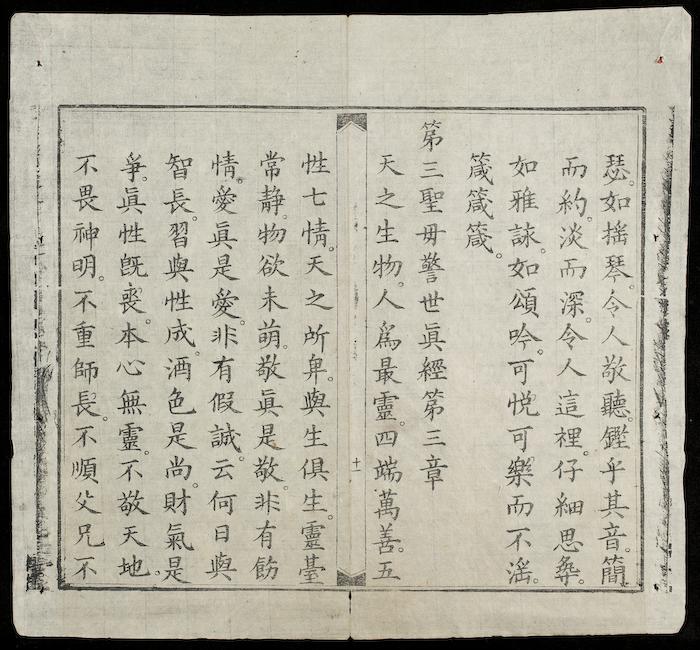 瑟。如搖琴。令人敬聽。鏗乎其音。簡
而約。淡而深。令人這裡。仔細思㮈。
如雅詠。如頌吟。可悅可樂而不滛。
箴箴箴。
第三聖毋警世眞經第三章
天之生物。人爲最靈。四端萬善。五
性七情。天之所畀。與生俱生。靈臺
常静。物欲未萌。敬眞是敬。非有餙
情。愛眞是愛。非有假誠。云何日與
智長。習與性成。酒色是尚。財氣是
爭。眞性旣喪。本心無靈。不敬天地。
不畏神明。不重師長。不順父兄。不
十一